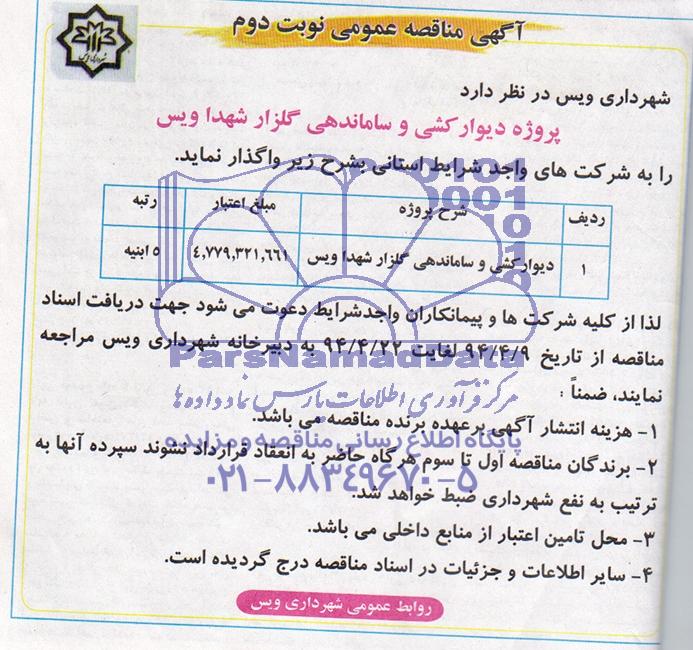 آگهی مناقصه عمومی نوبت دوم
شهرداری ویس در نظر دارد
پروژه دیوارکشی و ساماندهی گلزار شهدا ویس
را به شرکت های واجد شرایط استانی بشرح زیر واگذار نماید.
ردیف شرح پروژه مبلغ اعتبار رتبه
۱ دیوارکشی و ساماندهی گلزار شهدا ویس ٤,٧٧٩,٣٢١,٦٦١ ۵ ابنیه
لذا از کلیه شرکت ها و پیمانکاران واجدشرایط دعوت می شود جهت دریافت اسناد
مناقصه از تاریخ ۹۴/۴/۹ لغایت ۹۴/۴/۲۲ به دبیرخانه شهرداری ویس مراجعه
ParsNamadData
نمایند، ضمناً :
مرکز فرآوری اطلاعات پارس نماد داده ها
۱- هزینه انتشار آگهی برعهده برنده مناقصه می باشد.
پایگاه اطلاع رسانی مناقصه و مزایده
۲- برندگان مناقصه اول تا سوم هرگاه حاضر به انعقاد قرارداد نشوند سپرده آنها به
۰۲۱-۸۸۳۴۹۶۷۰-۵
ترتیب به نفع شهرداری ضبط خواهد شد.
۳- محل تامین اعتبار از منابع داخلی می باشد.
۴- سایر اطلاعات و جزئیات در اسناد مناقصه درج گردیده است.
روابط عمومی شهرداری ویس